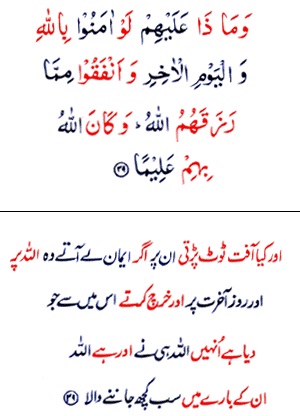 وَمَا ذَا عَلَيْهِمْ لَوْ اٰمَنُوْا بِاللّٰهِ
وَ الْيَوْمِ الْاٰخِرِ وَ اَنْفَقُوْا مِمَّا
رَزَقَهُمُ اللّٰهُ ؕ وَ كَانَ اللّٰهُ
بِهِمْ عَلِيْمًا ﴿۳۹﴾
اور کیا آفت ٹوٹ پڑتی ان پر اگر ایمان لے آتے وہ اللہ پر
اور روزِ آخرت پر اور خرچ کرتے اس میں سے جو
دیا ہے اُنہیں اللہ ہی نے اور ہے اللہ
ان کے بارے میں سب کچھ جاننے والا ﴿۳۹﴾